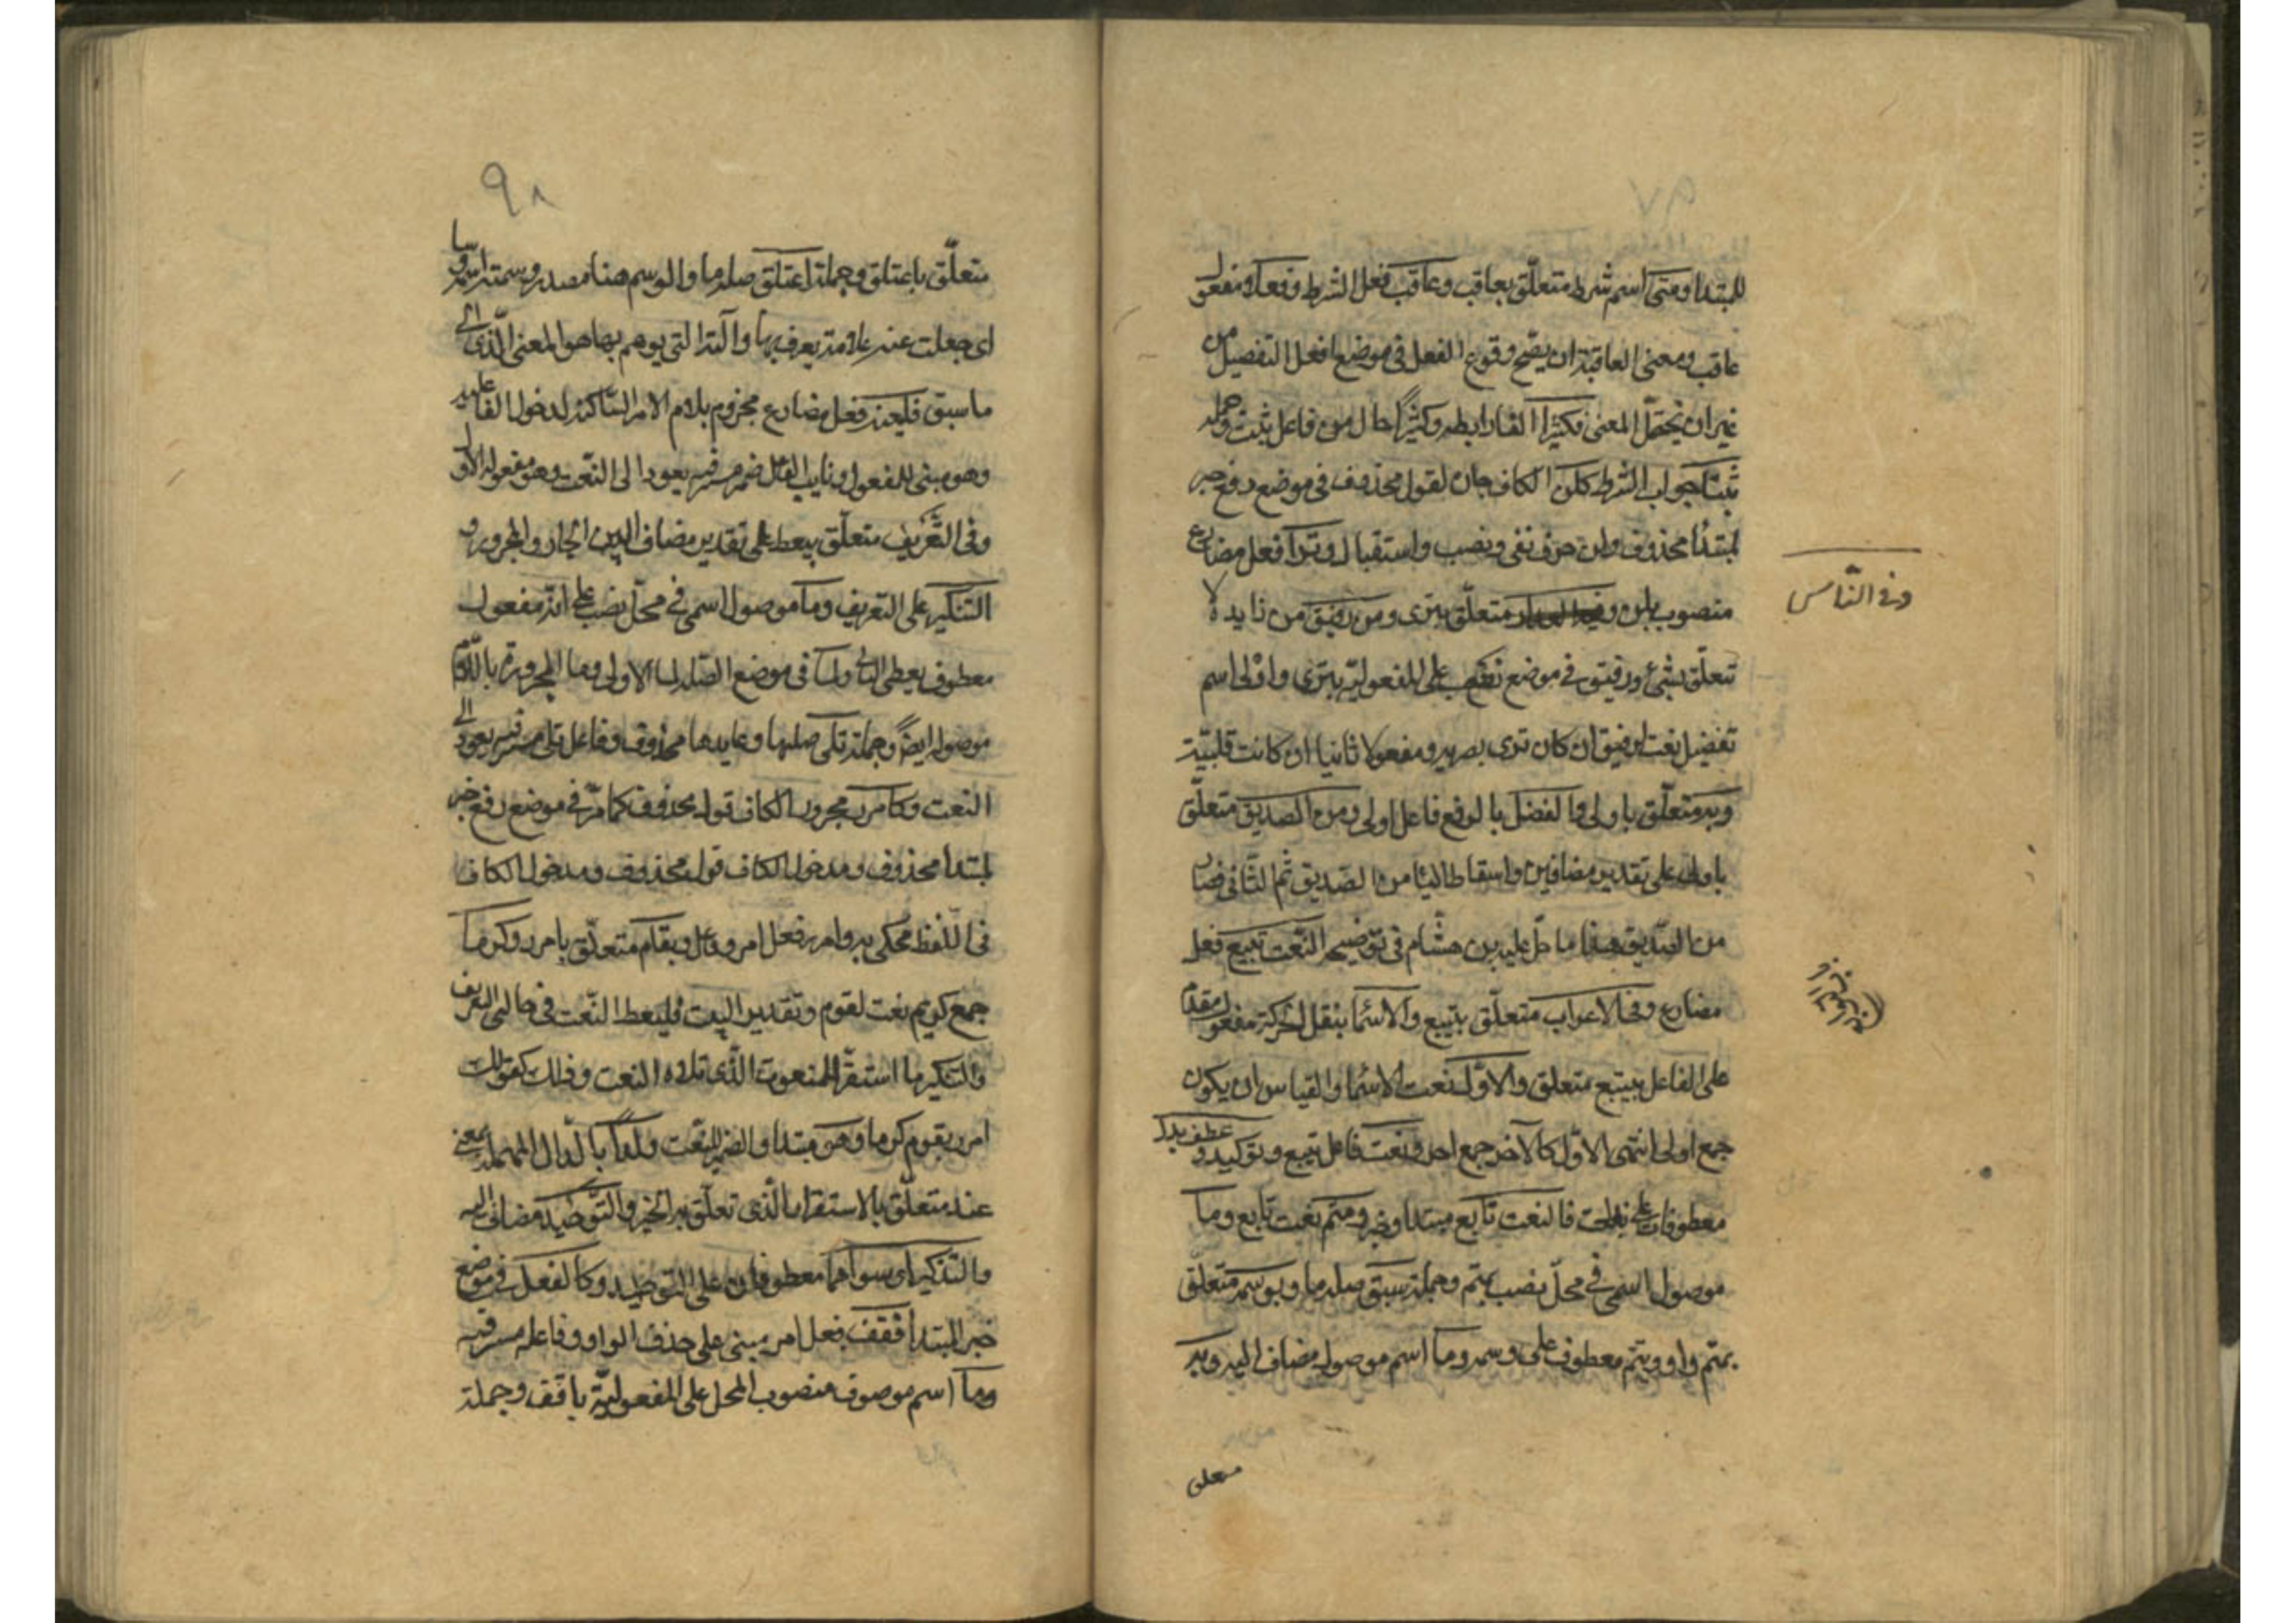 ٩٧
للمبتدا ومتى اسم شرط متعلّق بعاقب وعاقب فعل الشرط وفعلا مفعول
عاقب ومعنى المعاقبة ان يصّح وقوع الفعل فى موضع افعل التفضيل من
غير ان يختلّ المعنى فكثيرا الفا رابطه وكثيرًا حال من فاعل ثبت وجمله
ثبتا جواب الشرط كلن الكاف جارة لقول محذوف فى موضع رفع خبر
لمبتدأ محذوف ولن حرف نفى ونصب واستقبال وترا فعل مضارع
منصوب بلن و متعلّق بترى ومن رفيق من زايدة لا
وفى النّاس
تتعلّق بشئ ورفيق فى موضع نصب على المفعوليّة بترى واولى اسم
تفضيل نعت لرفيق ان كان ترى بصريه ومفعولا ثانيا ان كانت قلبيّة
وبه متعلّق باولى والفضل بالرفع فاعل اولى ومن الصديق متعلّق
باولى على تقدير مضافين واسقاطا من الصّديق ثم الثانى فضار
من الصّديق هذا ما حلّ عليه بن هشام فى توضيحه النّعت تتبع فعل
مضارع وفى الاعراب متعلّق بتتبع والاسما بنقل الحركة مفعول مقدّم
على الفاعل بيتبع متعلق والاوّل نعت الاسما والقياس ان يكون
جمع اولى انثى الاوّل كالآخر جمع احرى ونعت فاعل تتبع وتوكيد و عطف بدل
معطوفات على نعت فالنعت تابع مبتدا وخبر ومتم نعت تابع وما
موصول اسمى فى محلّ نصب بمتم وجملة سبق صله ما وبوسمه متعلّق
بمتّم واو وبتم معطوف على وسمه وما اسم موصول مضاف اليه وبه
متعلق
٩٨
متعلّق باعتلق وجملة اعتلق صله ما والوسم هنا مصدر وسمته اسمه وسما
اى جعلت عنده علامة يعرف بها والّتى يوهم بها هو المعنى الّذى الى
ما سبق فليعط فعل مضارع مجزوم بلام الامر السّاكنة لدخول الفا عليه
وهو مبنى للمفعول ونايب الفاعل ضمير مستتر فيه يعود الى النّعت وهو مفعوله الاول
وفى التّعريف متعلّق بيعط على تقدير مضاف بين الجار والمجرور و
التنكير على التعريف وما موصول اسمى فى محلّ نصب على انّه مفعول
معطوف يعطى الثانى ولما فى موضع الصّله لما الاولى وما المجرورة باللام
موصوله ايضًا وجملة تلى صلها وعايدها محذوف وفاعل تلى مستتر فيه يعود الى
النعت وكامرر مجرور الكاف قول محذوف كما مرّ فى موضع رفع خبر
لمبتدا محذوف ومدخول الكاف قول محذوف ومدخول الكاف
فى اللّفظ محكى به وامرر فعل امر وفاعل وبقوم متعلّق بامرر وكرما
جمع كريم نعت لقوم وتقدير البيت فليعط النّعت فى حالتى التعريف
والتنكير ما استقرّ للمنعوت الّذى تلاه النعت وذلك كقولك
امرر بقوم كرما وهو مبتدا والضمير للنعت ولدا بالدّال المهملة بمعنى
عند متعلّق بالاستقرار الّذى تعلّق به الخبر والتّوحيد مضاف اليه
والتذكير او سواهما معطوفان على التوحيد وكالفعل فى موضع
خبر المبتدأ فقف فعل امر مبنى على حذف الواو وفاعله مستتر فيه
وما اسم موصوف منصوب المحل على المفعوليّة باقف وجملة